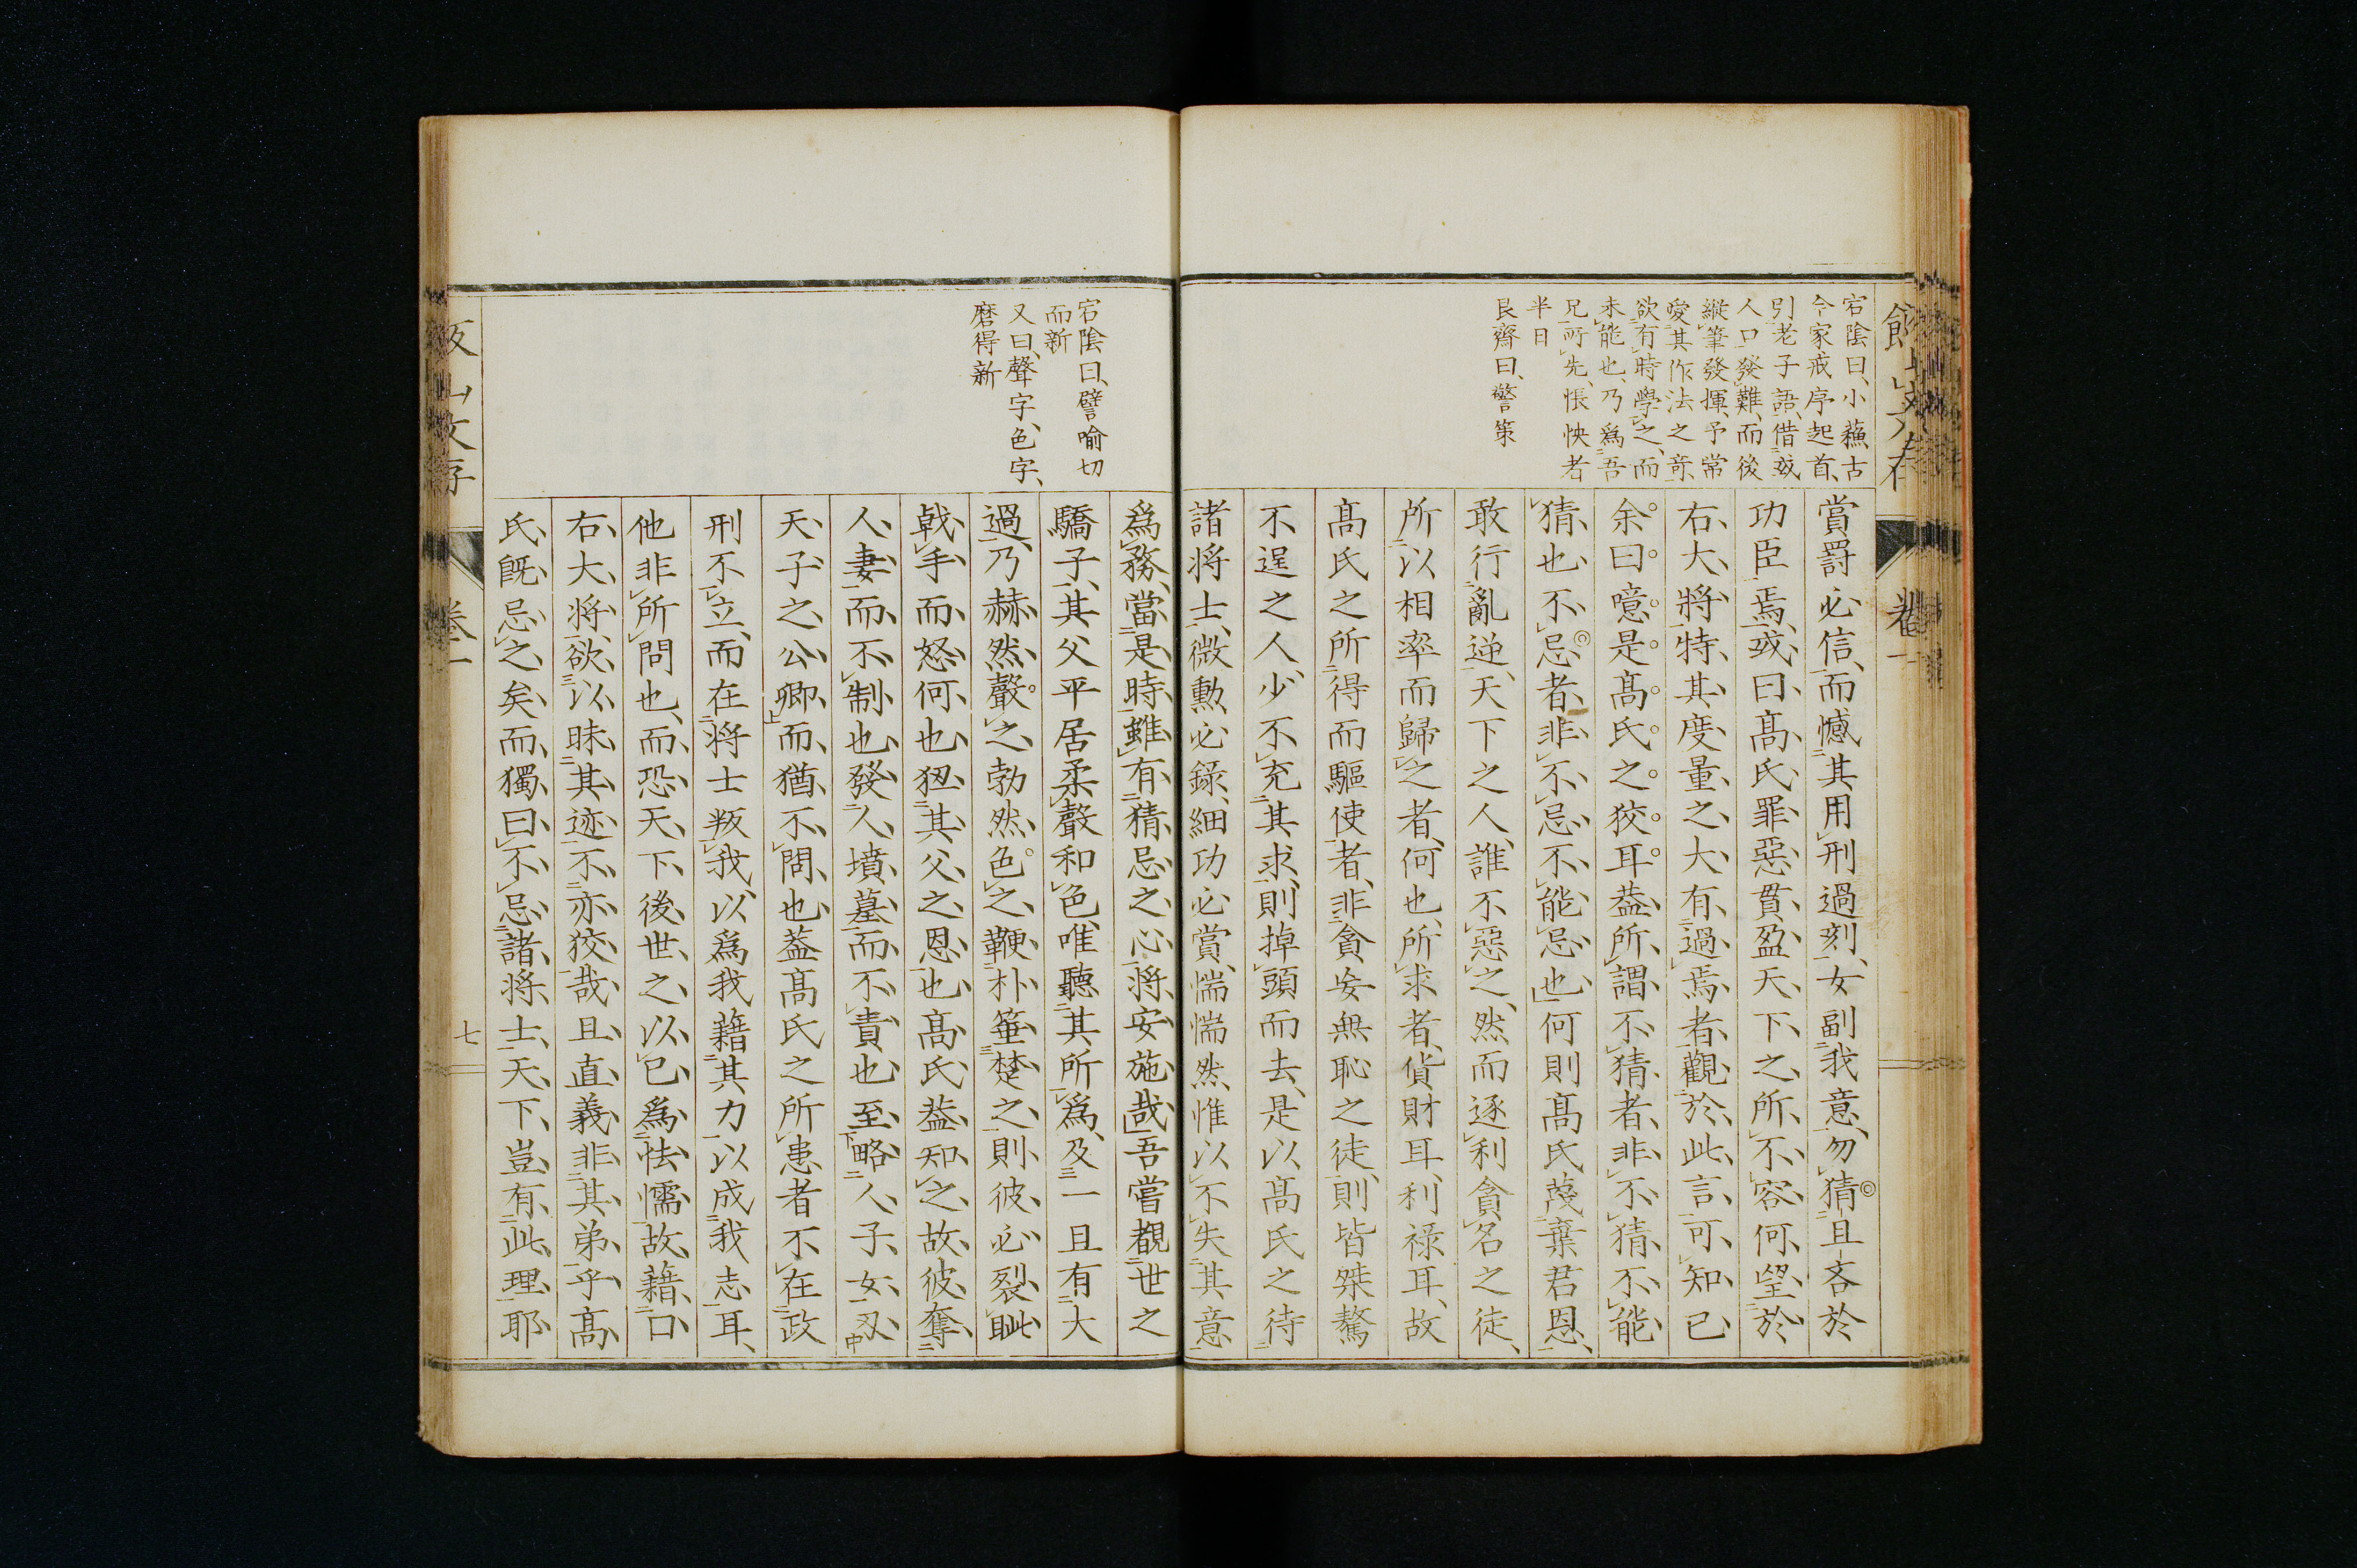 宕陰曰、小蘓古
今家戒序起首、
引老子語、借或
人口發難、而後
縱筆發揮、予常
愛其作法之奇、
欲有時學之、而
未能也、乃爲吾
兄所先、悵怏者
半日
艮齋曰、警策
賞罰必信、而憾其用刑過刻、女副我意、勿猜且吝於
功臣焉、或曰、髙氏罪惡貫盈天下之所不容何望於
右大將、特其度量之大有過焉者、觀於此言可知已
余曰噫是髙氏之狡耳葢所謂不猜者、非不猜、不能
猜也、不忌者、非不忌、不能忌也何則髙氏蔑棄君恩、
敢行亂逆、天下之人、誰不惡之、然而逐利貪名之徒、
所以相率而歸之者、何也、所求者、貨財耳、利祿耳、故
髙氏之所得而驅使者、非貪妄無恥之徒、則皆桀驁
不逞之人、少不充其求、則掉頭而去、是以髙氏之待
諸将士、微勲必錄、細功必賞、惴惴然、惟以不失其意
卷一
宕陰曰、譬喻切
而新
又曰、聲字、色字、
磨得新
爲務、當是時雖有猜忌之心、将安施哉吾嘗覩世之
驕子、其父平居柔聲和色、唯聽其所爲、及一旦有大
過、乃赫然聲之、勃然色之、鞭朴箠楚之、則彼必裂眦
戟手而怒何也狃其父之恩也髙氏葢知之故彼奪
人妻而不制也發人墳墓而不責也至略人子女刃
天子之公卿而猶不問也葢髙氏之所患者不在政
刑不立、而在将士叛我、以爲我藉其力以成我志耳、
他非所問也、而恐天下後世之以已爲怯懦故藉口
右大将、欲以昧其迹、不亦狡哉且直義非其弟乎髙
氏旣忌之矣而獨曰不忌諸将士、天下豈有此理耶
山文存
卷一
七